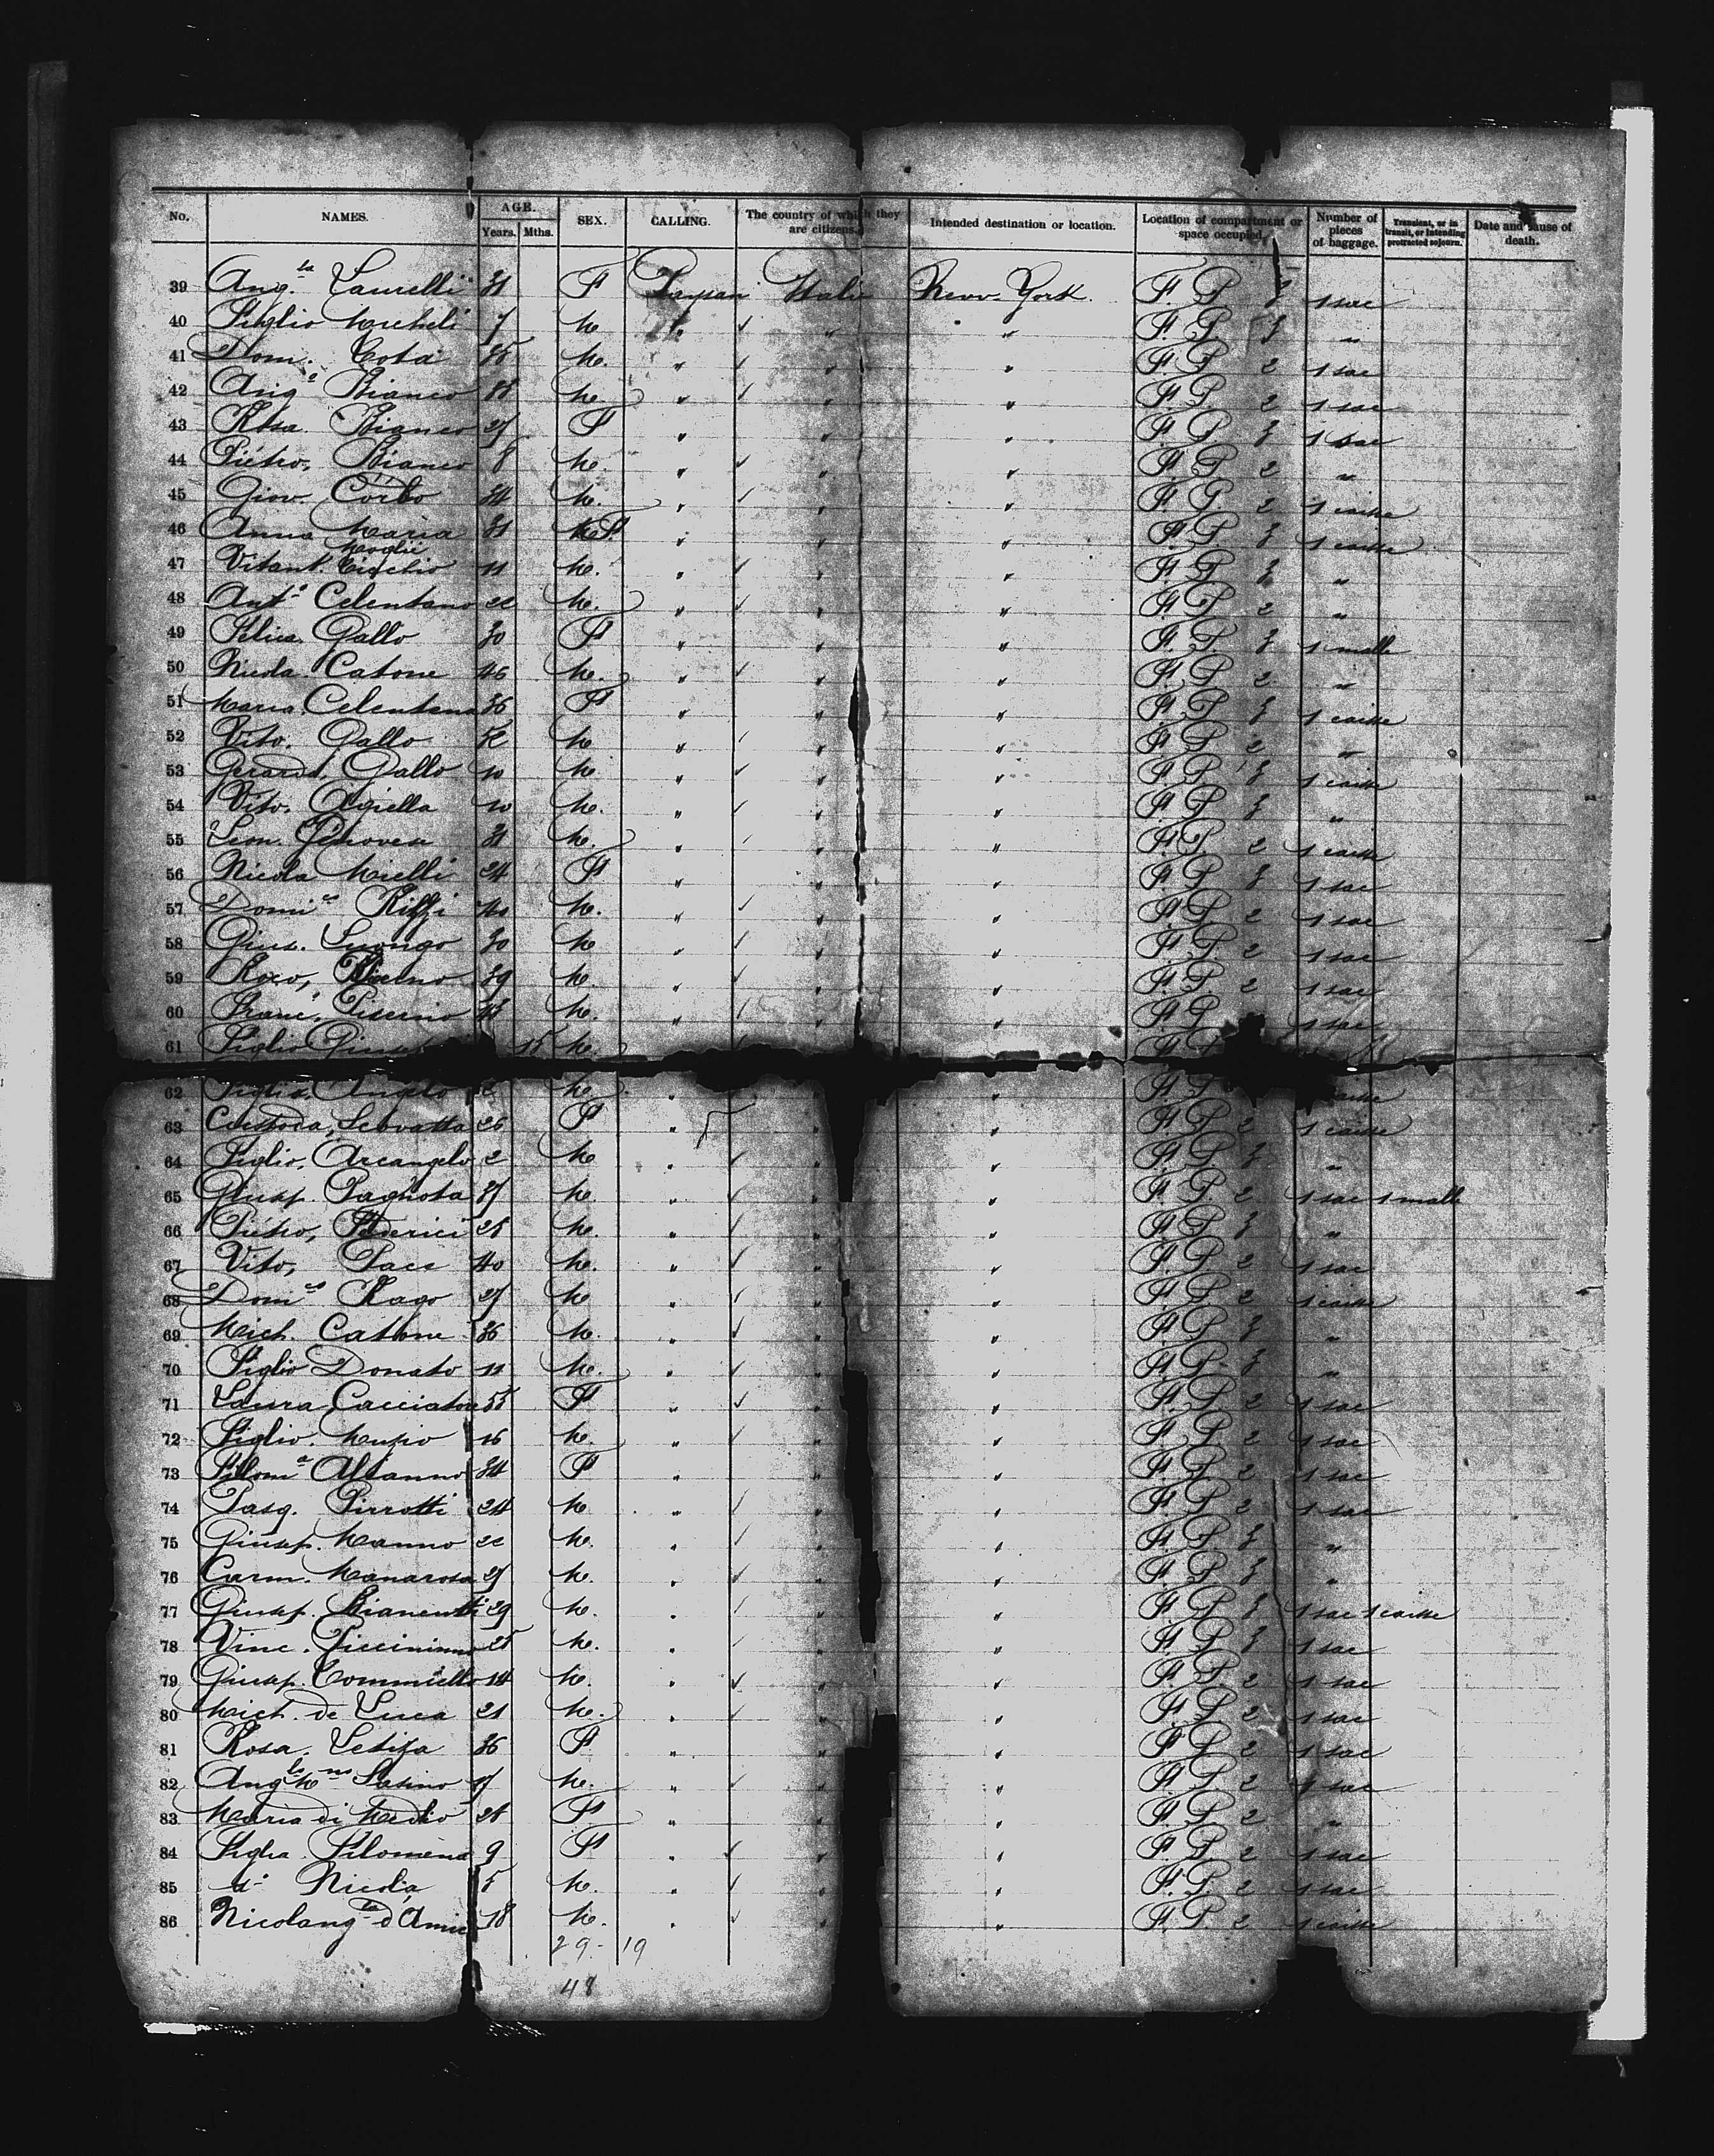 No. NAMES. AGE. Years. Mths. SEX. CALLING. The country of which they are citizens. Intended destination or location. Location of compartment or space occupied. Number of pieces of baggage. Transient, or in transit, or intending protracted sojourn. Date and cause of death.
39 Ang.la Laurelli 31 F Paysan Italie New-York. F. P 3 1 sac
40 Figlio Micheli 7 M " " " F. P 3 "
41 Dom. Cota 35 M. " " " F. P 2 1 sac
42 Ang.o Bianco M. " " " F. P 2 1 sac
43 Rosa Bianco 27 F " " " F. P 3 1 sac
44 Pietro, Bianco 8 M. " " " F. P 2 "
45 Giov. Corbo 34 M. " " " F. P. 2 1 caisse
46 Anna Maria 31 F " " " F. P 3 1 caisse
47 Vitant. 11 M. " " " F. P 3 "
48 Ant.o Celentano 22 M. " " " F. P 2 "
49 Felica Gallo 30 F " " " F. P 3 1 malle
50 Nicola Catone 46 M. " " " F. P 2 "
51 Maria Celentana 36 F " " " F. P 3 1 caisse
52 Vito. Gallo 52 M " " " F. P 2 "
53 Gerardo, Gallo 10 M " " " F. P 3 1 caisse
54 Vito. 10 M. " " " F. P 3 "
55 Leon. Genovese 31 M. " " " F. P 2 1 caisse
56 Nicola Mielli 24 F " " " F. P 3 1 sac
57 Domi.co M. " " " F. P 2 1 sac
58 Gius. Luongo 30 M " " " F. P 2 1 sac
59 Roco, 39 M. " " " F. P 2 1 sac
60 Franc. Piserino M. " " " F. P 1 sac
61 Figlio 15 M.
62 Figlio. Angelo M " " " F. P caisse
63 Custoda, Scovatta 26 F " " " F. P 2 1 caisse
64 Figlio, Arcangelo 2 M " " " F. P 3 "
65 Giusep. Pagnota 37 M " " " F. P 2 1 sac 1 malle
66 Pietro, Federici 28 M. " " " F. P 3 "
67 Vito, Pace 40 M. " " " F. P 2 1 sac
68 Dom.co Rago 27 M " " " F. P 2 1 caisse
69 Mich. Catone 36 M. " " " F. P 3 "
70 Figlio Donato 11 M. " " " F. P 3 "
71 Laura, Cacciatore 55 F " " " F. P 2 1 sac
72 Figlio. 16 M. " " " F. P 2 1 sac
73 Filom.a Alianno 34 F " " " F. P 2 1 sac
74 Pasq. Pirrotti 24 M " " " F. P 2 1 sac
75 Giusep. Manno 22 M. " " " F. P 3 "
76 Carm. Manarosa 27 M. " " " F. P 3 "
77 Giusep. 29 M. " " " F. P 3 1 sac 1 caisse
78 Vinc. Piccininno 25 M. " " " F. P 3 1 sac
79 Giusep. Commiello 14 M. " " " F. P 2 1 sac
80 Mich. de Luca 21 M. " " " F. P 2 1 sac
81 Rosa. Letiza 36 F " " " F. P 2 1 sac
82 17 M. " " " F. P 2 1 sac
83 Maria di Medio F " " " F. P 2 "
84 Figlia. Filomena 9 F " " " F. P 2 1 sac
85 d.o Nicola 5 M. " " " F. P. 2 1 sac
86 Nicolang.la d'Amico 18 M. " " " F. P. 2 1 caisse
29 - 19
48